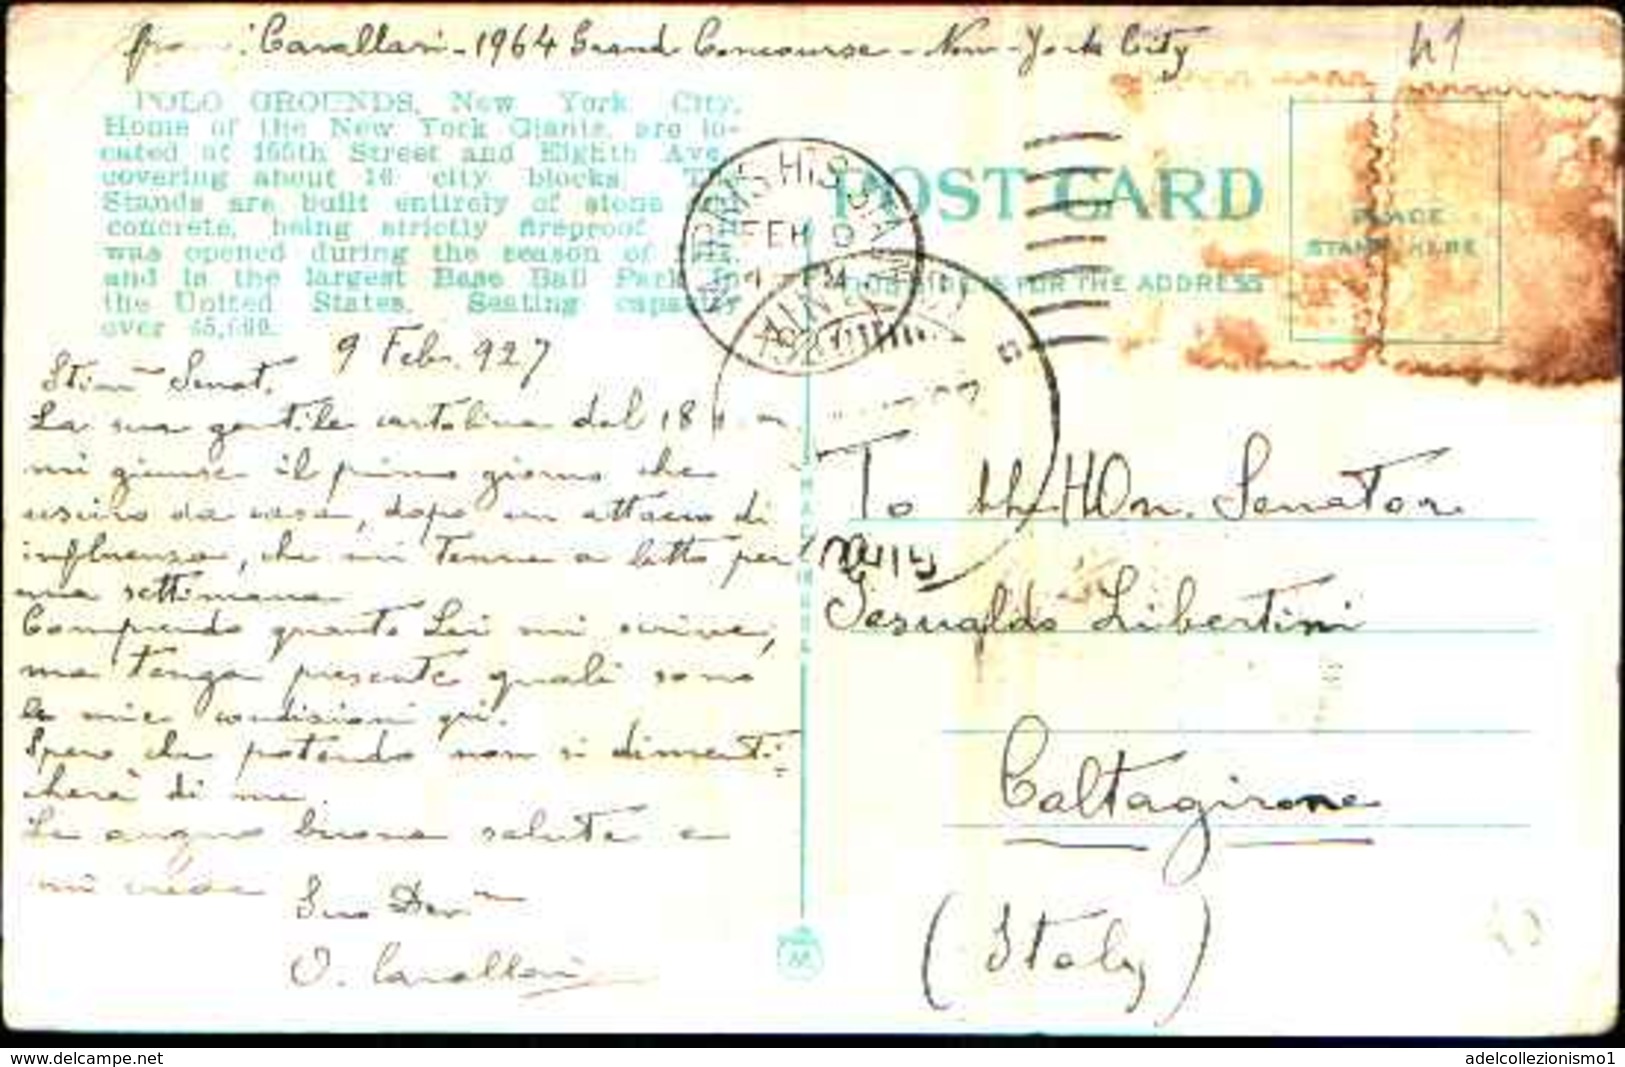 from: Cavallari - 1964 Grand Concourse - New-York City
41
POLO GROUNDS, New York City.
Home of the New York Giants, are lo-
cated at 155th Street and Eighth Ave.
covering about 16 city blocks. The
Stands are built entirely of stone and
concrete, being strictly fireproof
was opened during the season of
and is the largest Base Ball Park in
the United States. Seating capacity
over 45,000.
HIS STA
FEB 9
POST CARD
PLACE
STAMP HERE
THIS SIDE IS FOR THE ADDRESS
9 Febr. 927
Stim Senat.
La sua gentile cartolina dal 18
mi giunse il primo giorno che
uscivo da casa, dopo un attacco di
influenza, che mi tenne a letto per
una settimana
Comprendo quanto Lei mi scrive,
ma tenga presente quali sono
le mie condizioni qui.
Spero che potendo non si dimenti-
cherà di me.
Le auguro buona salute e
mi creda
Suo Dev
O. Cavallari
To the Hon. Senator
Gesualdo Libertini
Caltagirone
(Italy)
adelcollezionismo1
www.delcampe.net